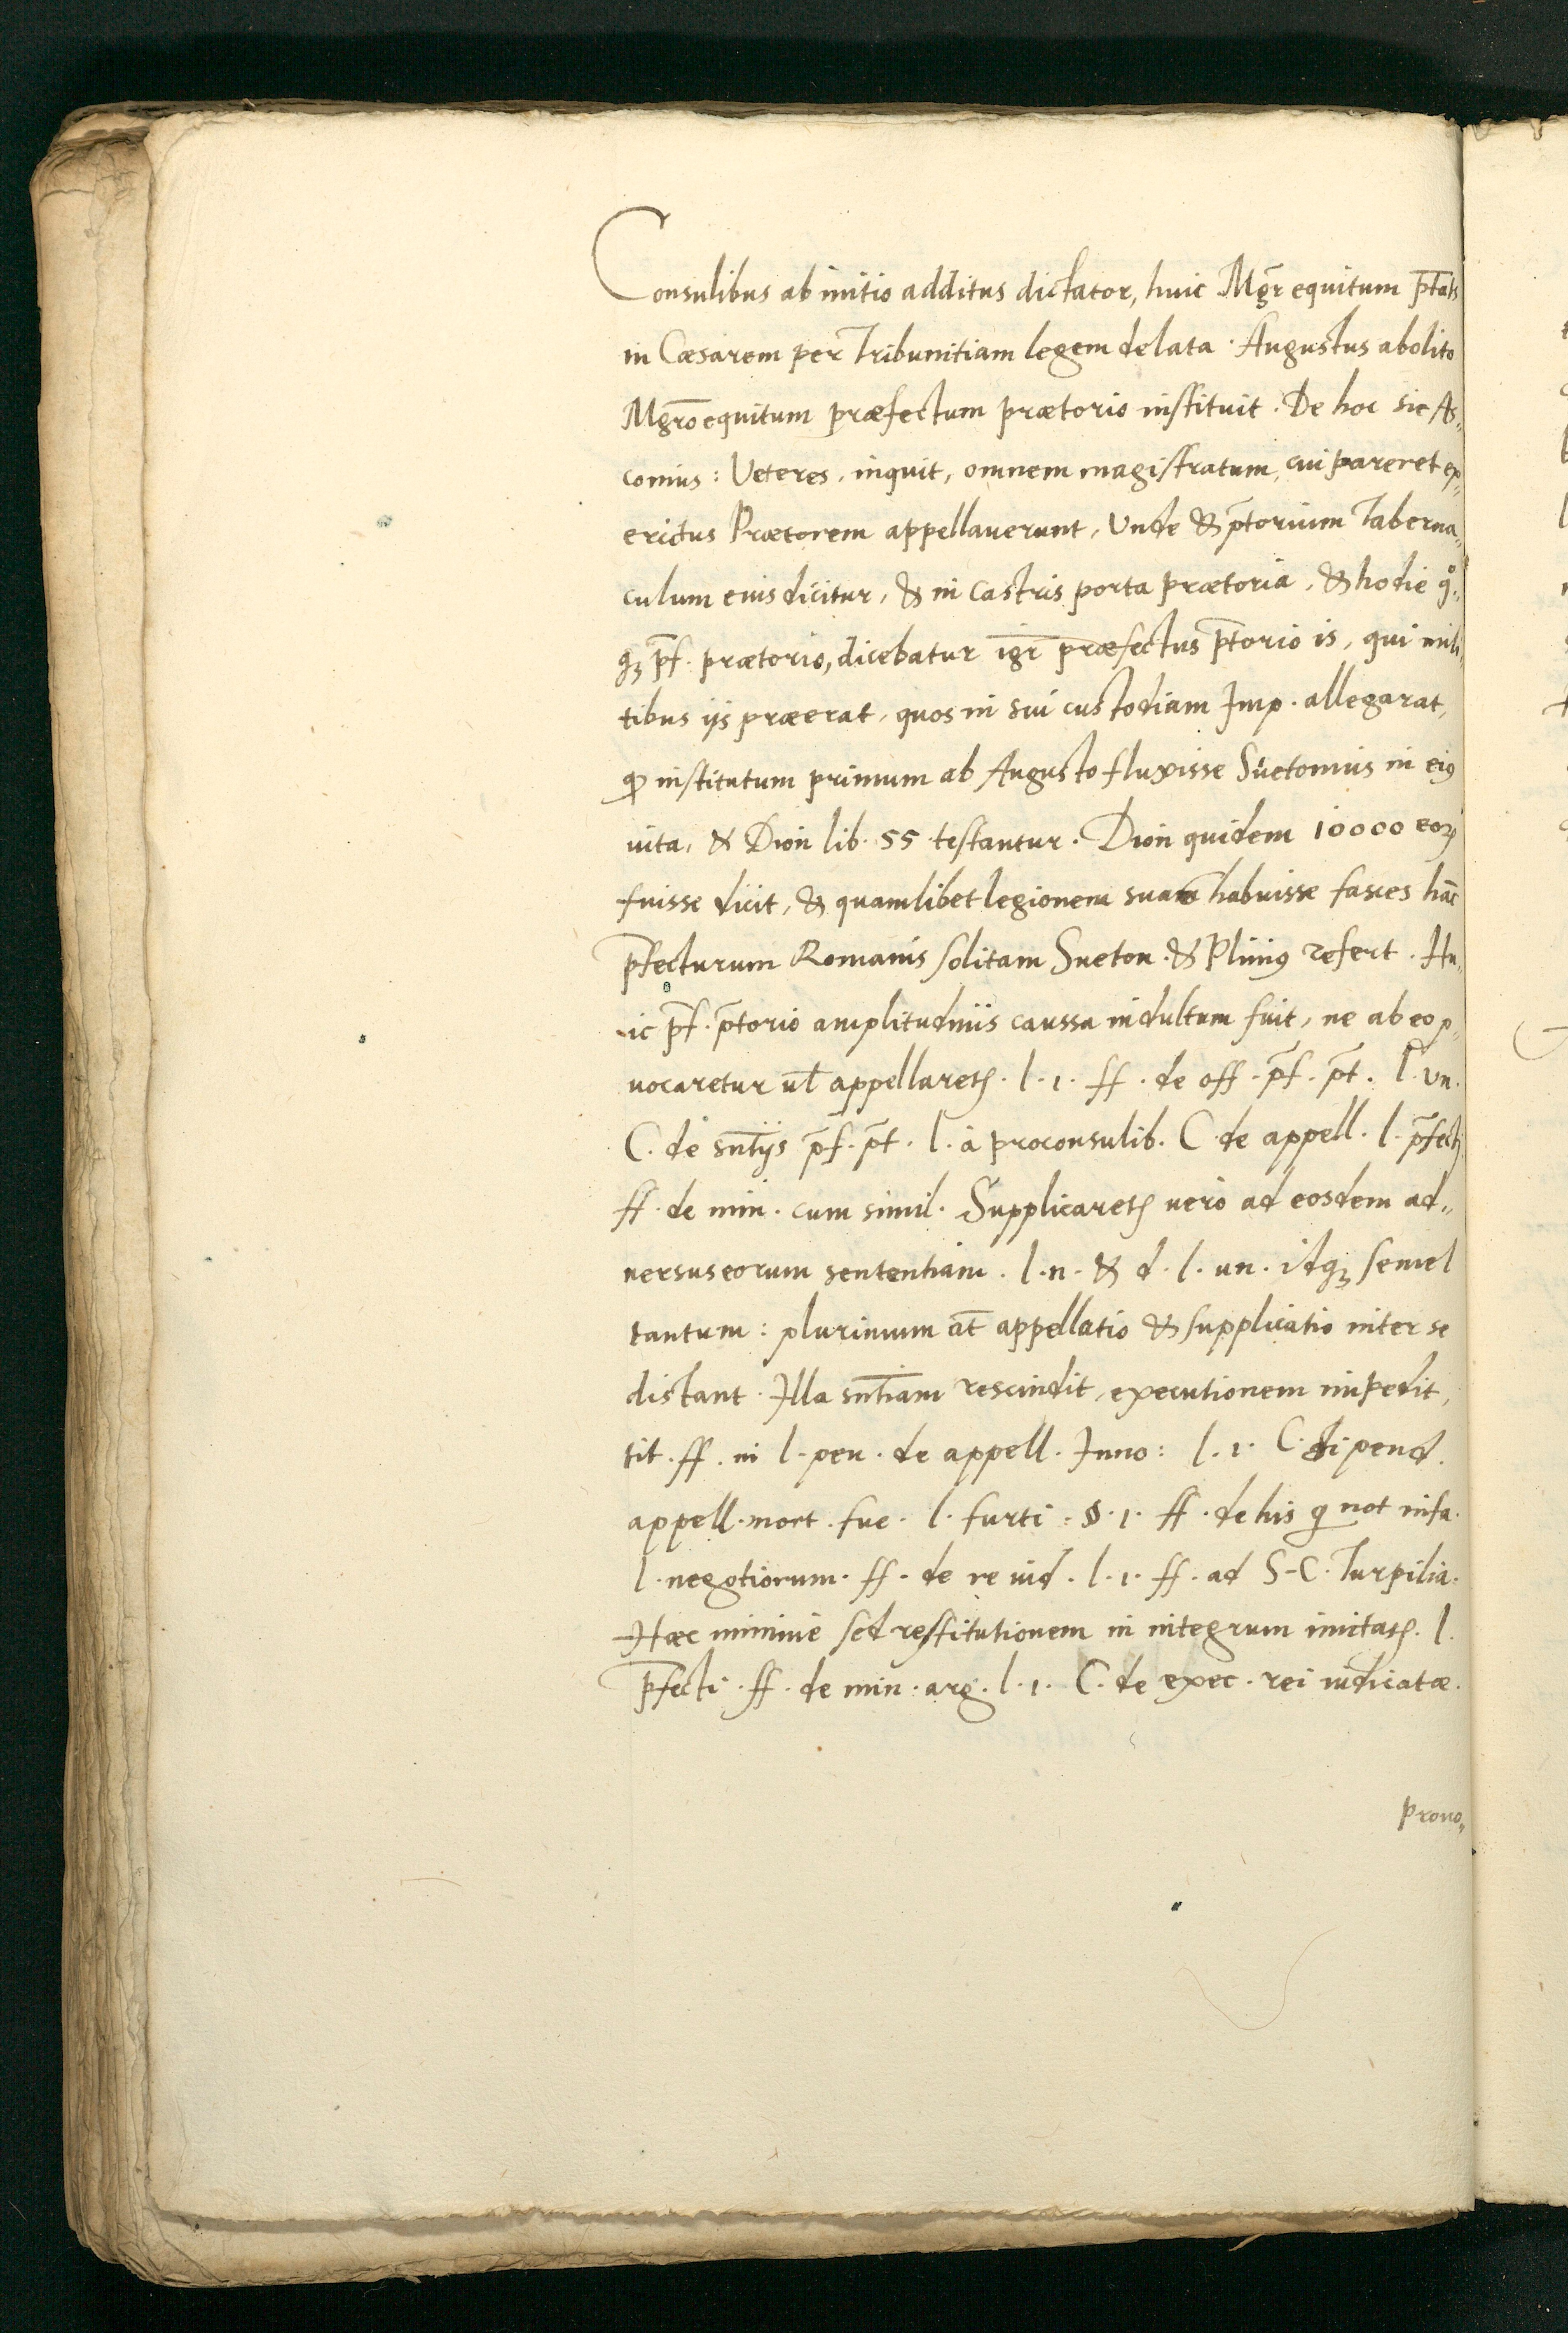 Consulibus ab initio additus dictator, huic Mgr̄ equitum p̄tats
in Cæsarem per Tribunitiam legem delata. Augustus abolito
Mgrō equitum præfectum prætorio instituit. De hoc sic As„
conius: Veteres, inquit, omnem magistratum, cui pareret ex„
ercitus Prætorem appellauerunt, Unde & p̄torium Taberna„
culum eius dicitur, & in castris porta prætoria, & hodie qͦ„
qꝫ p̄f. prætorio, dicebatur igr̄ præfectus p̄torio is, qui mili„
tibus ijs præerat, quos in sui custodiam Imp. allegarat,
ꝙ institutum primum ab Augusto fluxisse Suetonius in eiꝰ
uita, & Dion lib. 55 testantur. Dion quidem 10000 eoꝝ
fuisse dicit, & quamlibet legionem suam habuisse fasces hāc
p̄fecturum Romanis solitam Sueton. & Pliniꝰ refert. Hu„
ic p̄f. p̄torio amplitudinis caussa indultum fuit, ne ab eo p„
uocaretur ul̄ appellaretꝭ. l. 1. ff. de off. p̄f. p̄t. l. un.
C. de sn̄tijs p̄f. p̄t. l. à proconsulib. C. de appell. l. p̄fecti
ff. de min. cum simil. Supplicaretꝭ uero ad eosdem ad„
uersus eorum sententiam. l. n. & d. l. un. idqꝫ semel
tantum: plurimum at̄ appellatio & supplicatio inter se
distant. Illa sn̄tiam rescindit, executionem impedit,
tit. ff. ni l. pen. de appell. Inno: l. 1. C. si pend.
appell. mort. fue. l. furti. §. 1. ff. de his q not infa.
l. negotiorum. ff. de re iud. l. 1. ff. ad S-C. Turpilia.
Hæc minime sed restitutionem in integrum imitatꝭ. l.
p̄fecti. ff. de min. arg. l. 1. C. de exec. rei iudicatæ.
Prouo„